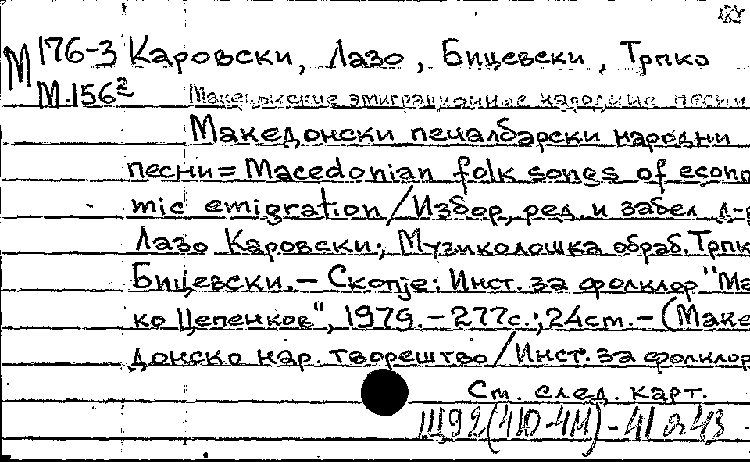 М 176-3 Каровски, Лазо, Бицевски, Трпко
М.156²
Македонские эмиграционные народные песни
Македонски печалбарски народни
песни = Macedonian folk songs of econo
mic emigration / Избор, ред. и забел. д-р
Лазо Каровски; Музиколошка обраб. Трпк
Бицевски. – Скопје: Инст. за фолклор "Ма
ко Цепенков", 1979. – 277с.; 24cm. – (Маке
донско нар. творештво / Инст. за фолклор
Ст. след. карт.
Щ92(4Ю-4М)-41